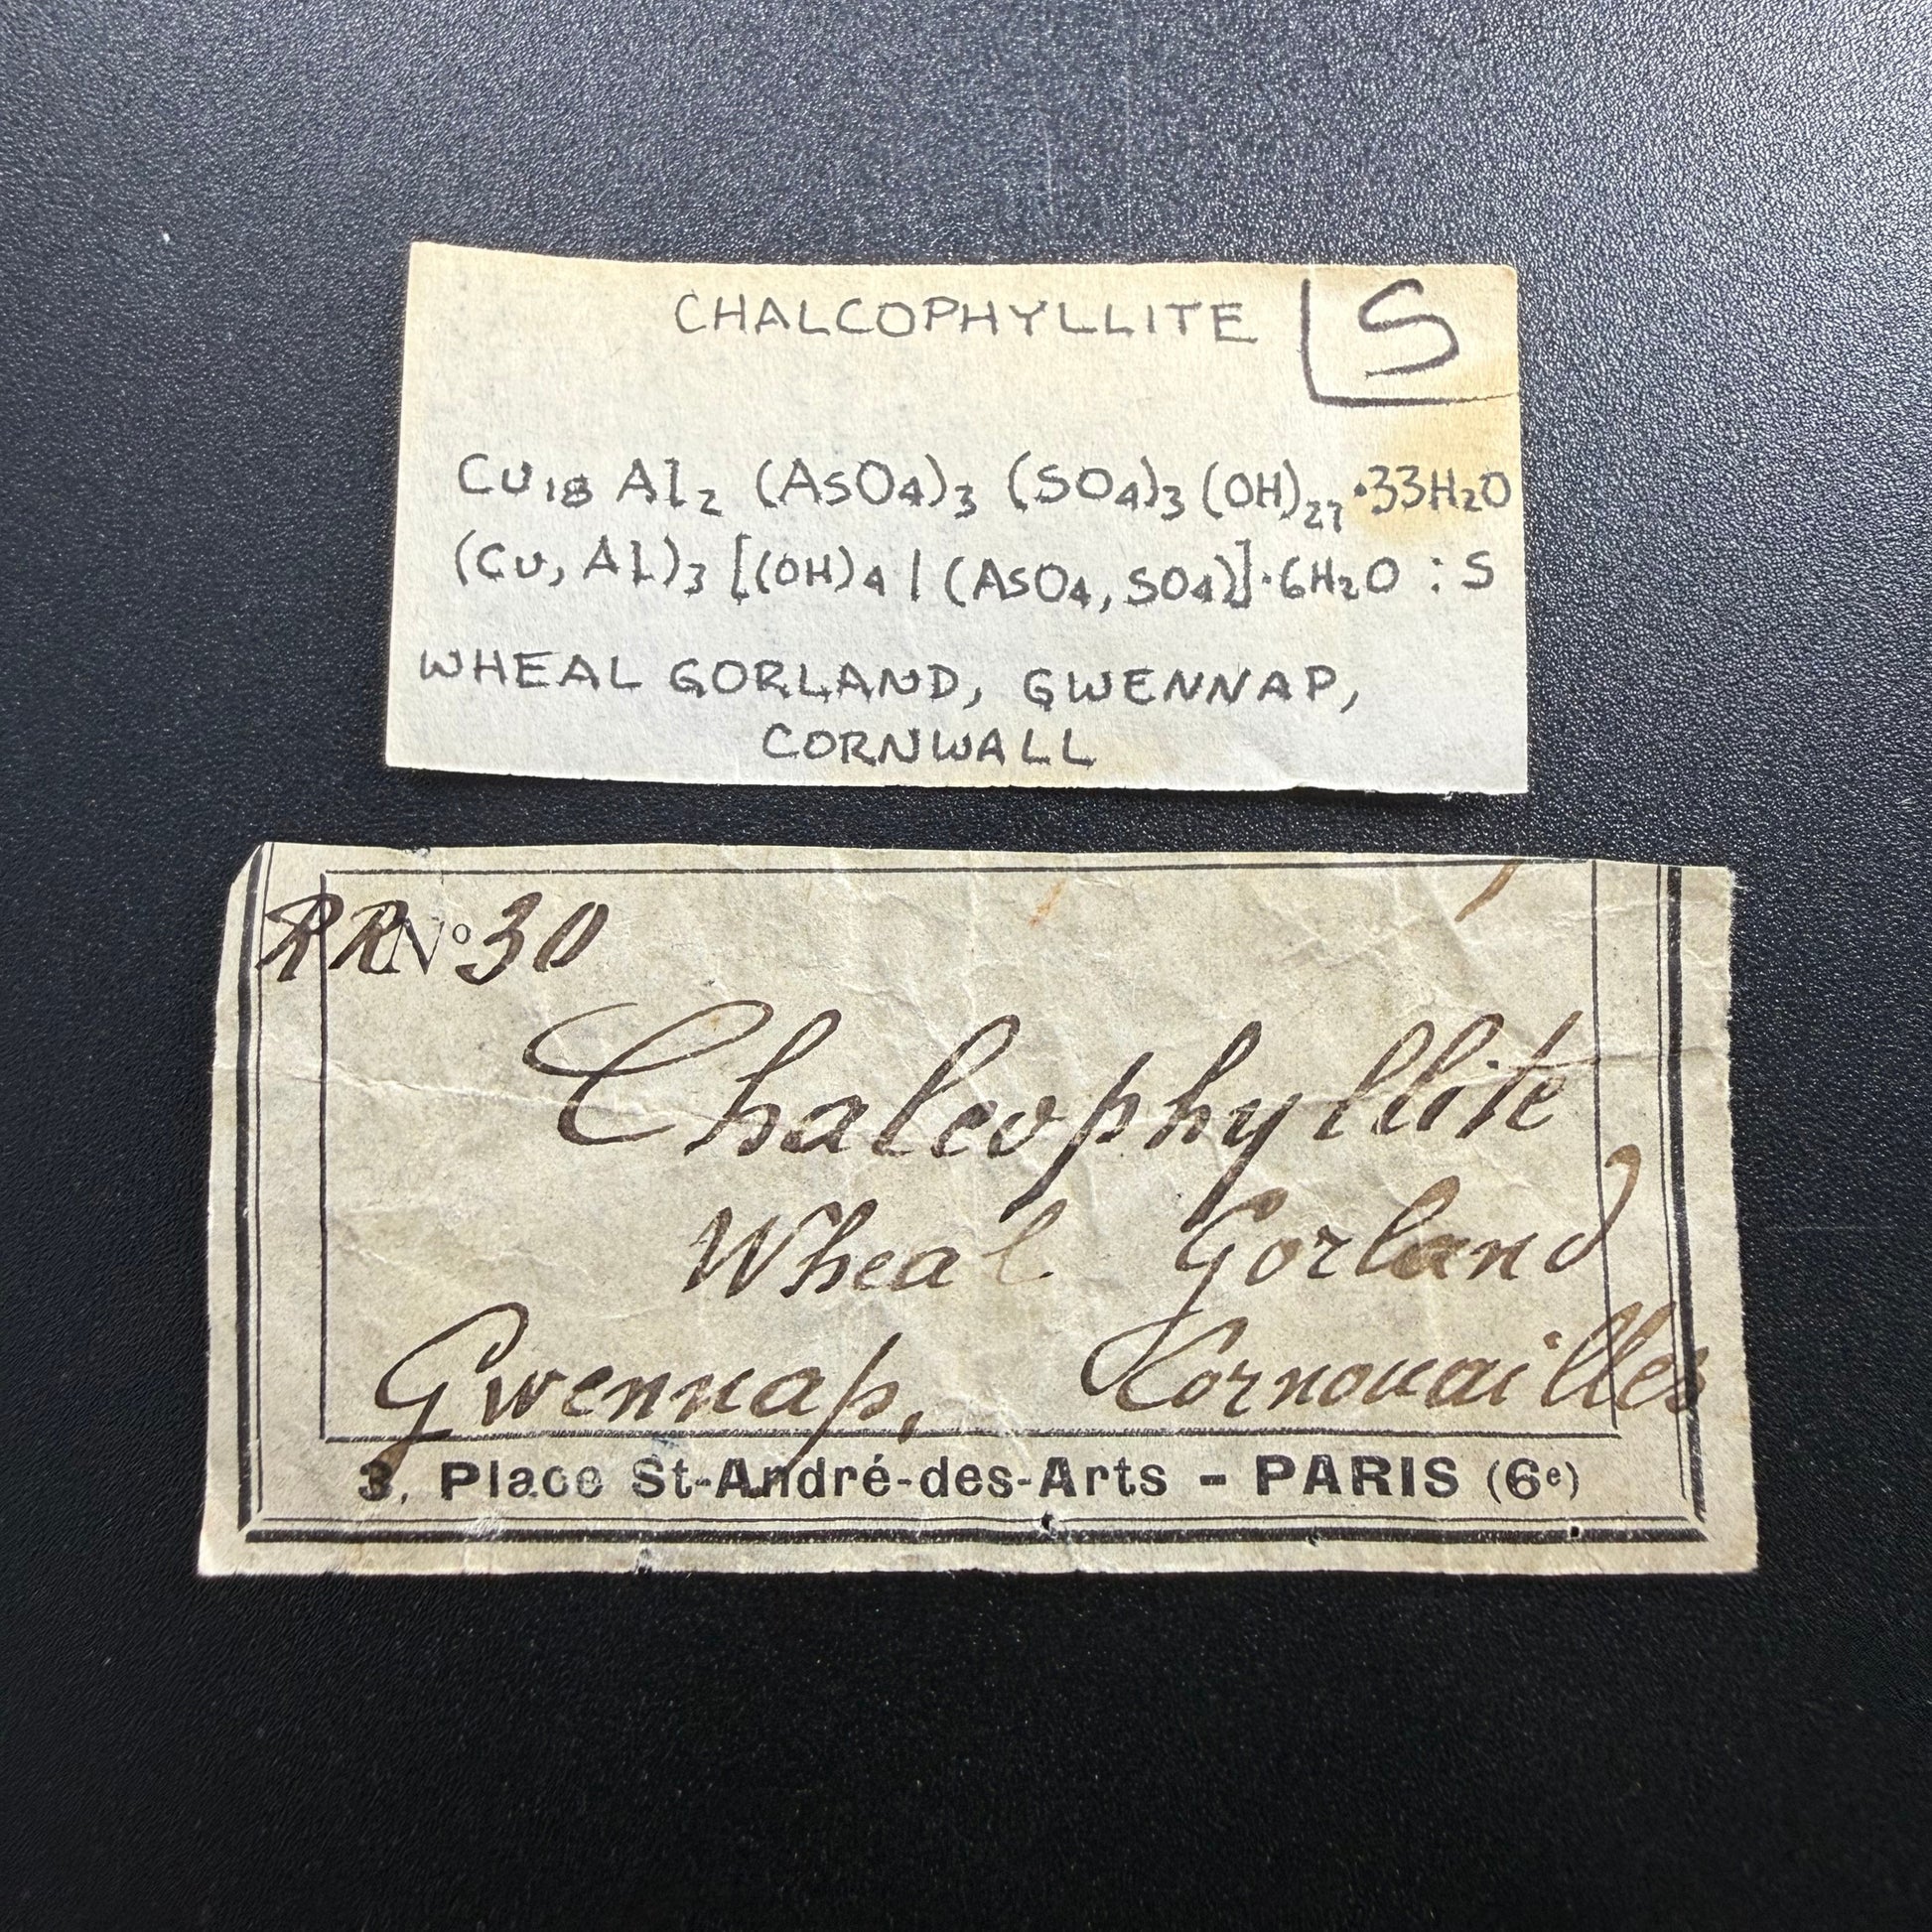 CHALCOPHYLLITE S
Cu₁₈ Al₂ (AsO₄)₃ (SO₄)₃ (OH)₂₇ ·33H₂O
(Cu, Al)₃ [(OH)₄ | (AsO₄, SO₄)]·6H₂O : S
WHEAL GORLAND, GWENNAP,
CORNWALL
RR Nº 30
Chalcophyllite
Wheal Gorland
Gwennap, Cornouailles
3, Place St-André-des-Arts - PARIS (6e)